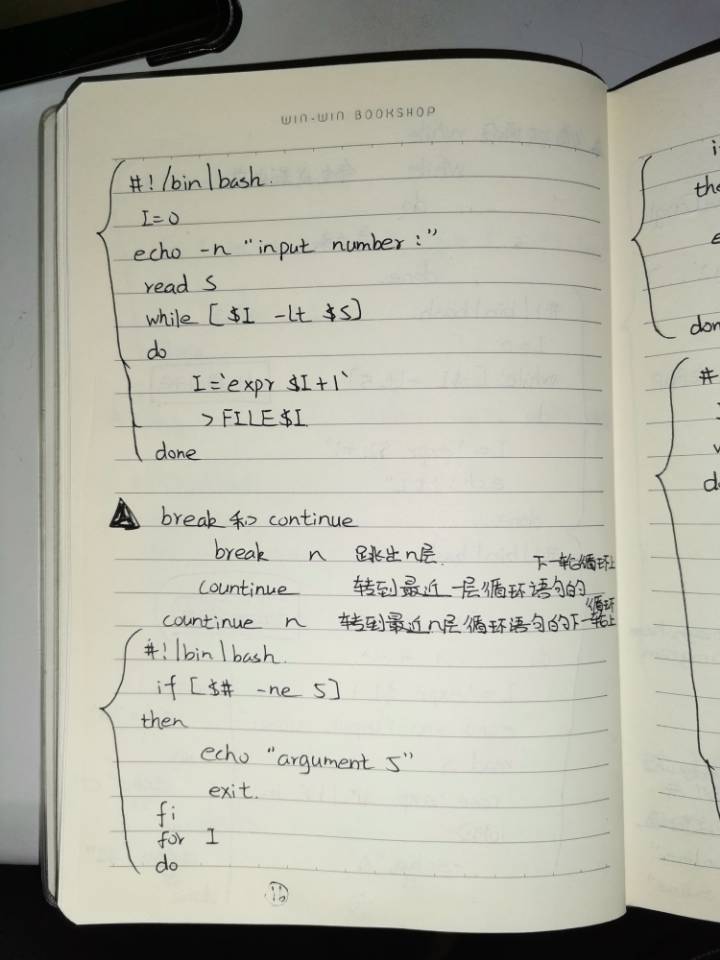 WIN-WIN BOOKSHOP
#!/bin/bash.
I=0
echo -n "input number:"
read S
while [ $I -lt $S]
do
I=`expr $I+1`
> FILE$I
done
break 和 continue
break n 跳出n层.
countinue 转到最近一层循环语句的下一轮循环上
countinue n 转到最近n层循环语句的下一轮循环上
#!/bin/bash.
if [$# -ne 5]
then
echo "argument 5"
exit.
fi
for I
do
16
i
the
e
don
#
d